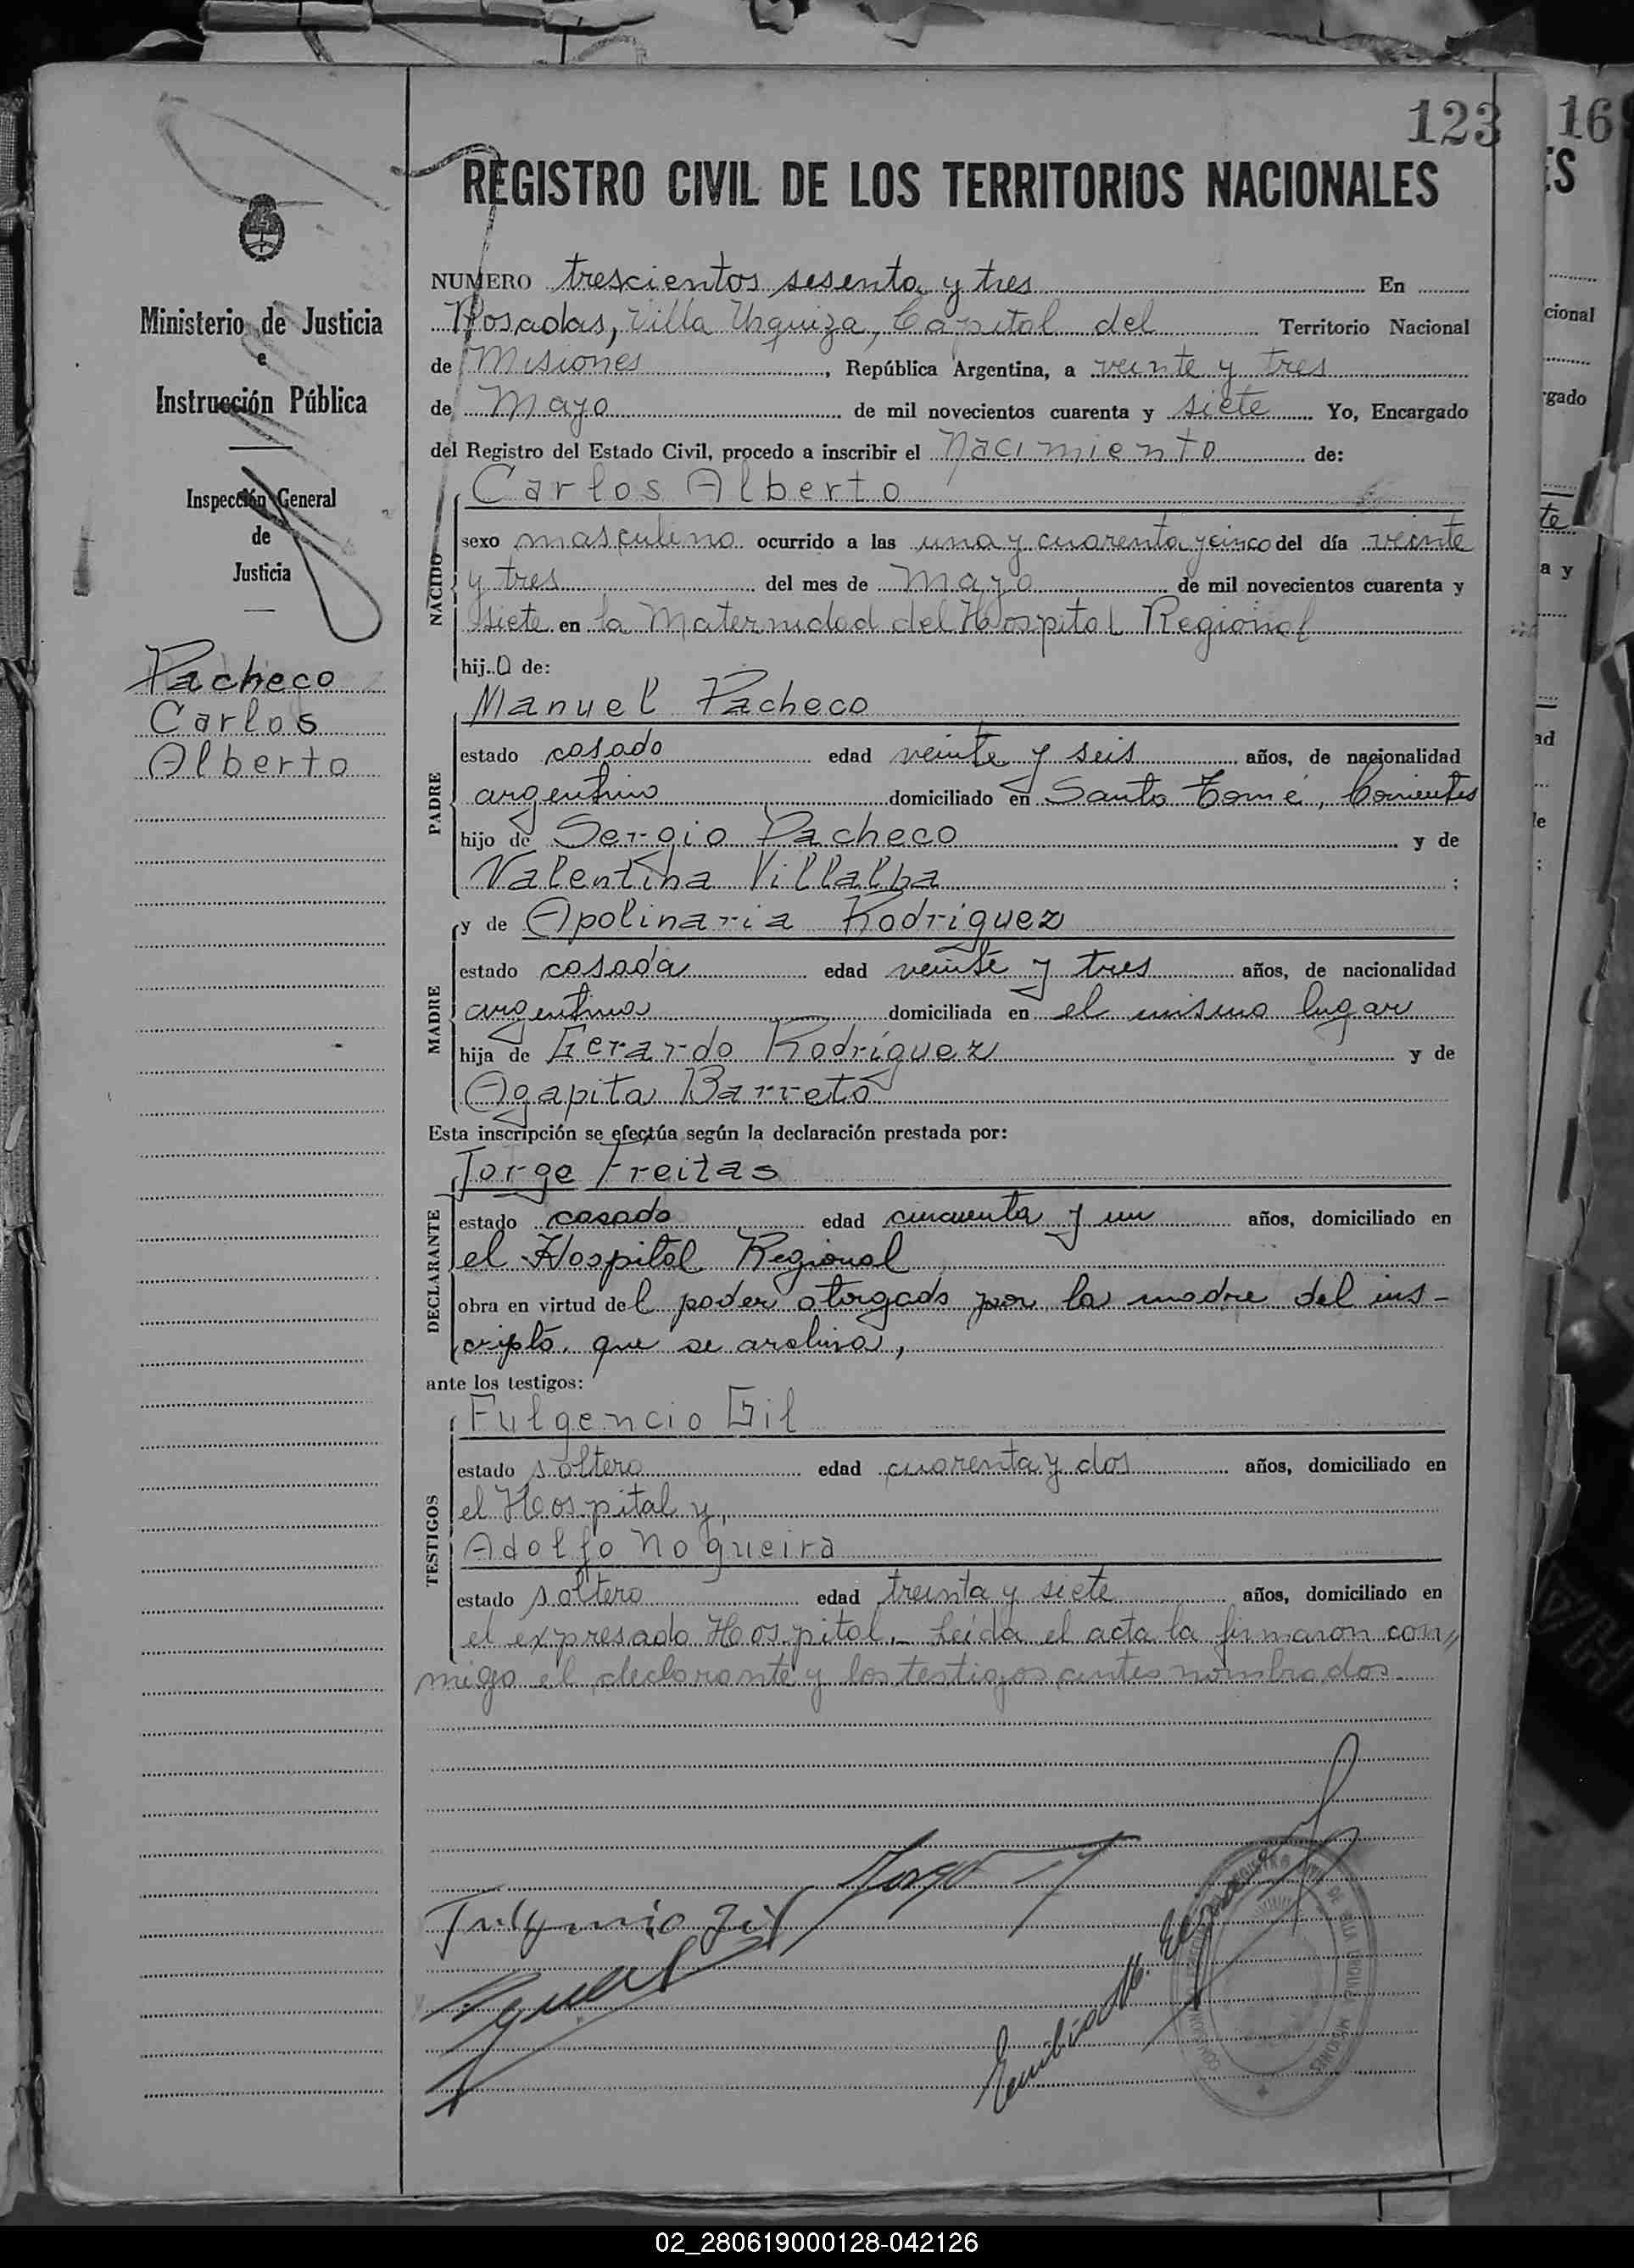 123
16
REGISTRO CIVIL DE LOS TERRITORIOS NACIONALES
ES
Ministerio de Justicia
e
Instrucción Pública
Inspección General
de
Justicia
Pacheco
Carlos
Alberto
NUMERO trescientos sesenta y tres En
Posadas, Villa Urquiza, Capital del Territorio Nacional
de Misiones, República Argentina, a veinte y tres
de Mayo de mil novecientos cuarenta y siete Yo, Encargado
del Registro del Estado Civil, procedo a inscribir el Nacimiento de:
NACIDO
Carlos Alberto
sexo masculino ocurrido a las una y cuarenta y cinco del día veinte
y tres del mes de Mayo de mil novecientos cuarenta y
siete en la Maternidad del Hospital Regional
hijo de:
PADRE
Manuel Pacheco
estado casado edad veinte y seis años, de nacionalidad
argentino domiciliado en Santo Tomé, Corrientes
hijo de Sergio Pacheco y de
Valentina Villalba;
MADRE
y de Apolinaria Rodríguez
estado casada edad veinte y tres años, de nacionalidad
argentina domiciliada en el mismo lugar
hija de Gerardo Rodríguez y de
Agapita Barreto
Esta inscripción se efectúa según la declaración prestada por:
DECLARANTE
Jorge Freitas
estado casado edad cincuenta y un años, domiciliado en
el Hospital Regional
obra en virtud del poder otorgado por la madre del ins-
cripto que se archiva,
ante los testigos:
TESTIGOS
Fulgencio Gil
estado soltero edad cuarenta y dos años, domiciliado en
el Hospital y,
Adolfo Nogueira
estado soltero edad treinta y siete años, domiciliado en
el expresado Hospital.- Leída el acta la firmaron con//
migo el declarante y los testigos antes nombrados.
Fulgencio Gil
Jorge
Emilia M.
cional
rgado
te
a y
ad
de
;
02_280619000128-042126